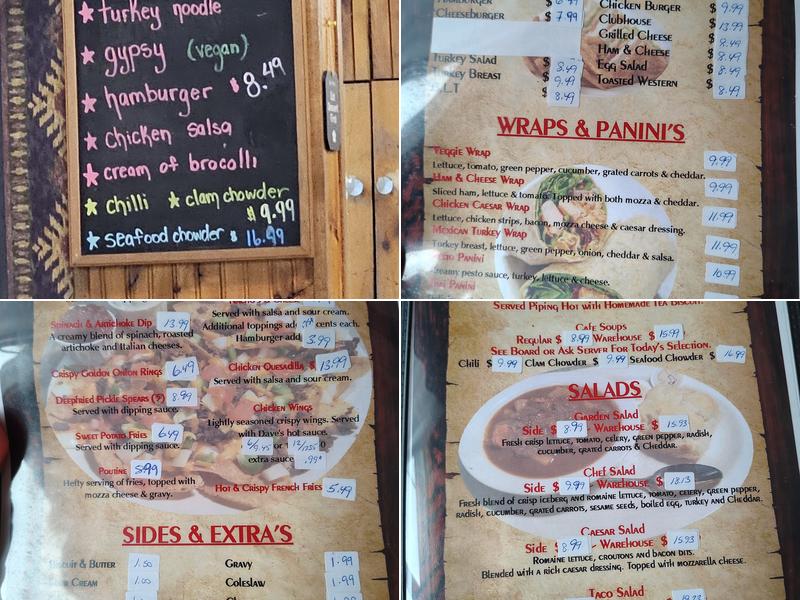 ★ turkey noodle
★ gypsy (vegan)
★ hamburger $8.49
★ chicken salsa
★ cream of brocolli
★ chilli ★ clam chowder
$9.99
★ seafood chowder $ 16.99
Cheeseburger $ 7.99
Turkey Salad $
Turkey Breast $ 9.49
8.49
Chicken Burger $ 9.99
Clubhouse $ 13.99
Grilled Cheese $ 8.49
Ham & Cheese $ 8.49
Egg Salad $ 8.49
Toasted Western $ 8.49
WRAPS & PANINI'S
Veggie Wrap 9.99
Lettuce, tomato, green pepper, cucumber, grated carrots & cheddar.
Ham & Cheese Wrap 9.99
Sliced ham, lettuce & tomato. Topped with both mozza & cheddar.
Chicken Caesar Wrap 11.99
Lettuce, chicken strips, bacon, mozza cheese & caesar dressing.
Mexican Turkey Wrap 11.99
Turkey breast, lettuce, green pepper, onion, cheddar & salsa.
Panini 10.99
Creamy pesto sauce, turkey, lettuce & cheese.
Panini
Spinach & Artichoke Dip 13.99
A creamy blend of spinach, roasted
artichoke and Italian cheeses.
Crispy Golden Onion Rings 6.49
Deepfried Pickle Spears (5) 8.99
Served with dipping sauce.
Sweet Potato Fries 6.49
Served with dipping sauce.
Poutine 5.99
Hefty serving of fries, topped with
mozza cheese & gravy.
Served with salsa and sour cream.
Additional toppings add cents each.
Hamburger add 3.99
Chicken Quesadilla $ 13.99
Served with salsa and sour cream.
Chicken Wings
Lightly seasoned crispy wings. Served
with Dave's hot sauce.
or
extra sauce .99
Hot & Crispy French Fries 5.49
SIDES & EXTRA'S
Biscuit & Butter 1.50
Sour Cream 1.00
Gravy 1.99
Coleslaw 1.99
Served Piping Hot with Homemade Tea Biscuit
Cafe Soups
Regular $ 8.99 Warehouse $ 15.99
See Board or Ask Server For Today's Selection.
Chili $ 9.99 Clam Chowder $ 9.99 Seafood Chowder $ 16.99
SALADS
Garden Salad
Side $ 8.99 - Warehouse $ 15.93
Fresh crisp lettuce, tomato, celery, green pepper, radish,
cucumber, grated carrots & Cheddar.
Chef Salad
Side $ 9.99 - Warehouse $ 18.13
Fresh blend of crisp iceberg and romaine lettuce, tomato, celery, green pepper,
radish, cucumber, grated carrots, sesame seeds, boiled egg, turkey and Cheddar.
Caesar Salad
Side $ 8.99 - Warehouse $ 15.93
Romaine lettuce, croutons and bacon bits.
Blended with a rich caesar dressing. Topped with mozzarella cheese.
Taco Salad